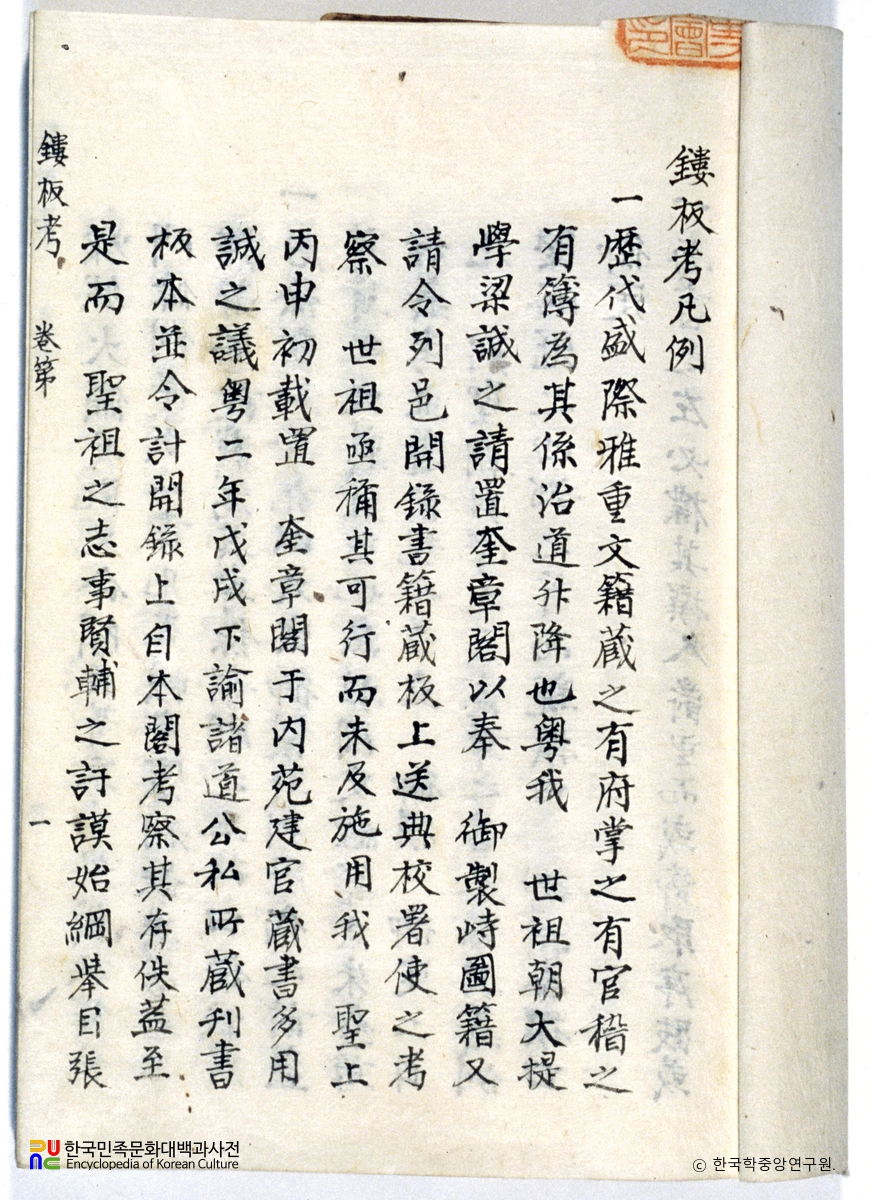 鏤板考凡例
一歷代盛際雅重文籍藏之有府掌之有官稽之
有簿為其係治道升降也粤我 世祖朝大提
學梁誠之請置奎章閣以奉 御製峙圖籍又
請令列邑開錄書籍藏板上送典校署使之考
察 世祖亟稱其可行而未及施用我 聖上
丙申初載置 奎章閣于内苑建官藏書多用
誠之議粤二年戊戌下諭諸道公私所藏刊書
板本並令計開錄上自本閣考察其存佚蓋至
是而 聖祖之志事賢輔之訏謨始綱舉目張
鏤板考 卷第 一
한국민족문화대백과사전
Encyclopedia of Korean Culture
ⓒ 한국학중앙연구원.